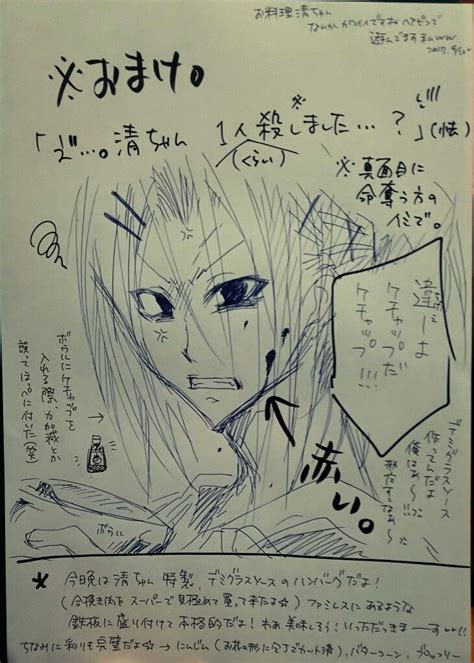 お料理清ちゃん
なんかカワイイですねヘアピンって
遊んでますまんww
※おまけ。
「ど…。清ちゃん 1人殺しました…?」(怯)
(くらい)
※真面目に
命奪う方の
イミで。
違ーよ
ケチャップだ
ケチャップ!!!
デミグラスソース
作ってんだよ
俺はぁ〜
邪魔すんなぁ〜
ボウルにケチャップを
入れる際、力加減とか
誤ってほっぺに付いた(笑)
赤い。
ボウル
* 今晩は清ちゃん特製、デミグラスソースのハンバーグだよ!
(合挽き肉をスーパーで見極めて買って来たよ☆)ファミレスにあるような
鉄板に盛り付けて本格的だよ!わぁ美味しそう!いっただっきまーす
ちなみに彩りも完璧だよ☆→にんじん(お花の形に包丁でカット済)、バターコーン、ブロッコリー